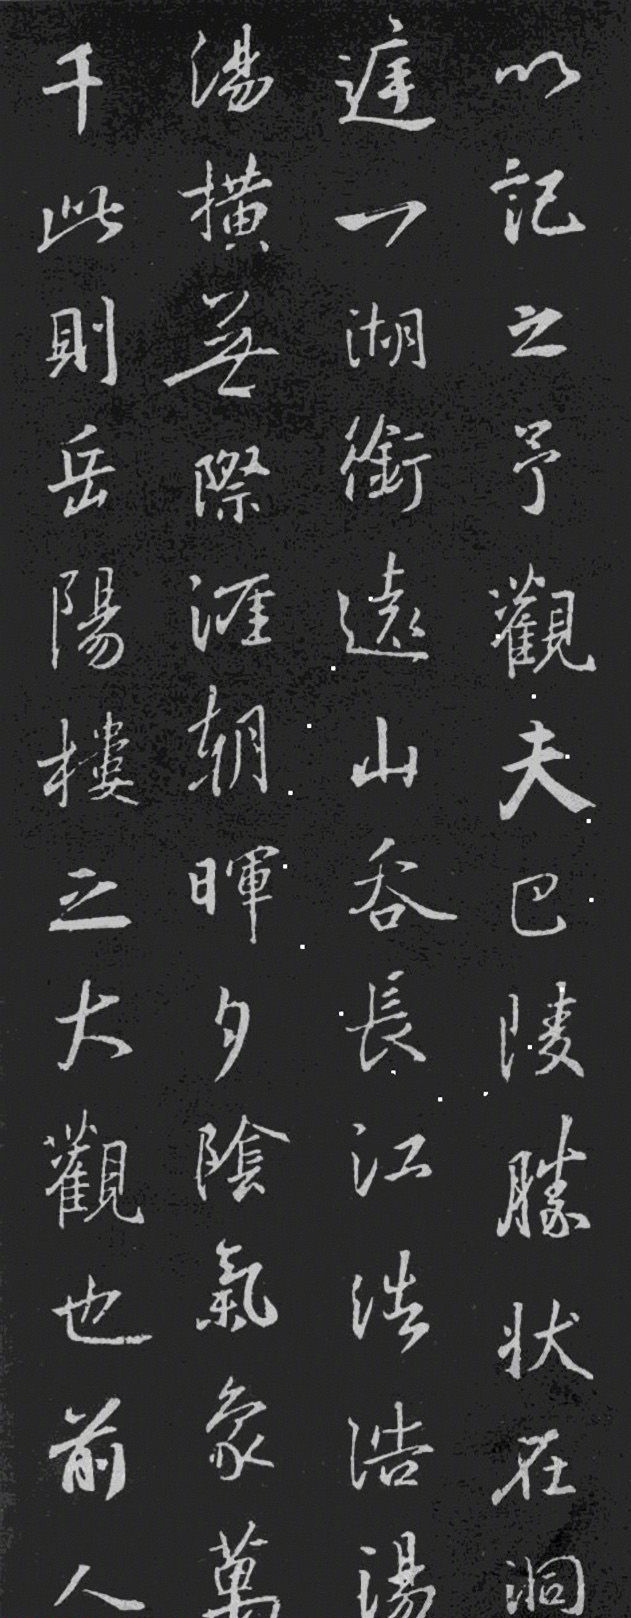 以記之予觀夫巴陵勝状在洞
遲一湖銜遠山吞長江浩浩湯
湯橫無際涯朝暉夕陰氣象萬
千此則岳陽樓之大觀也前人